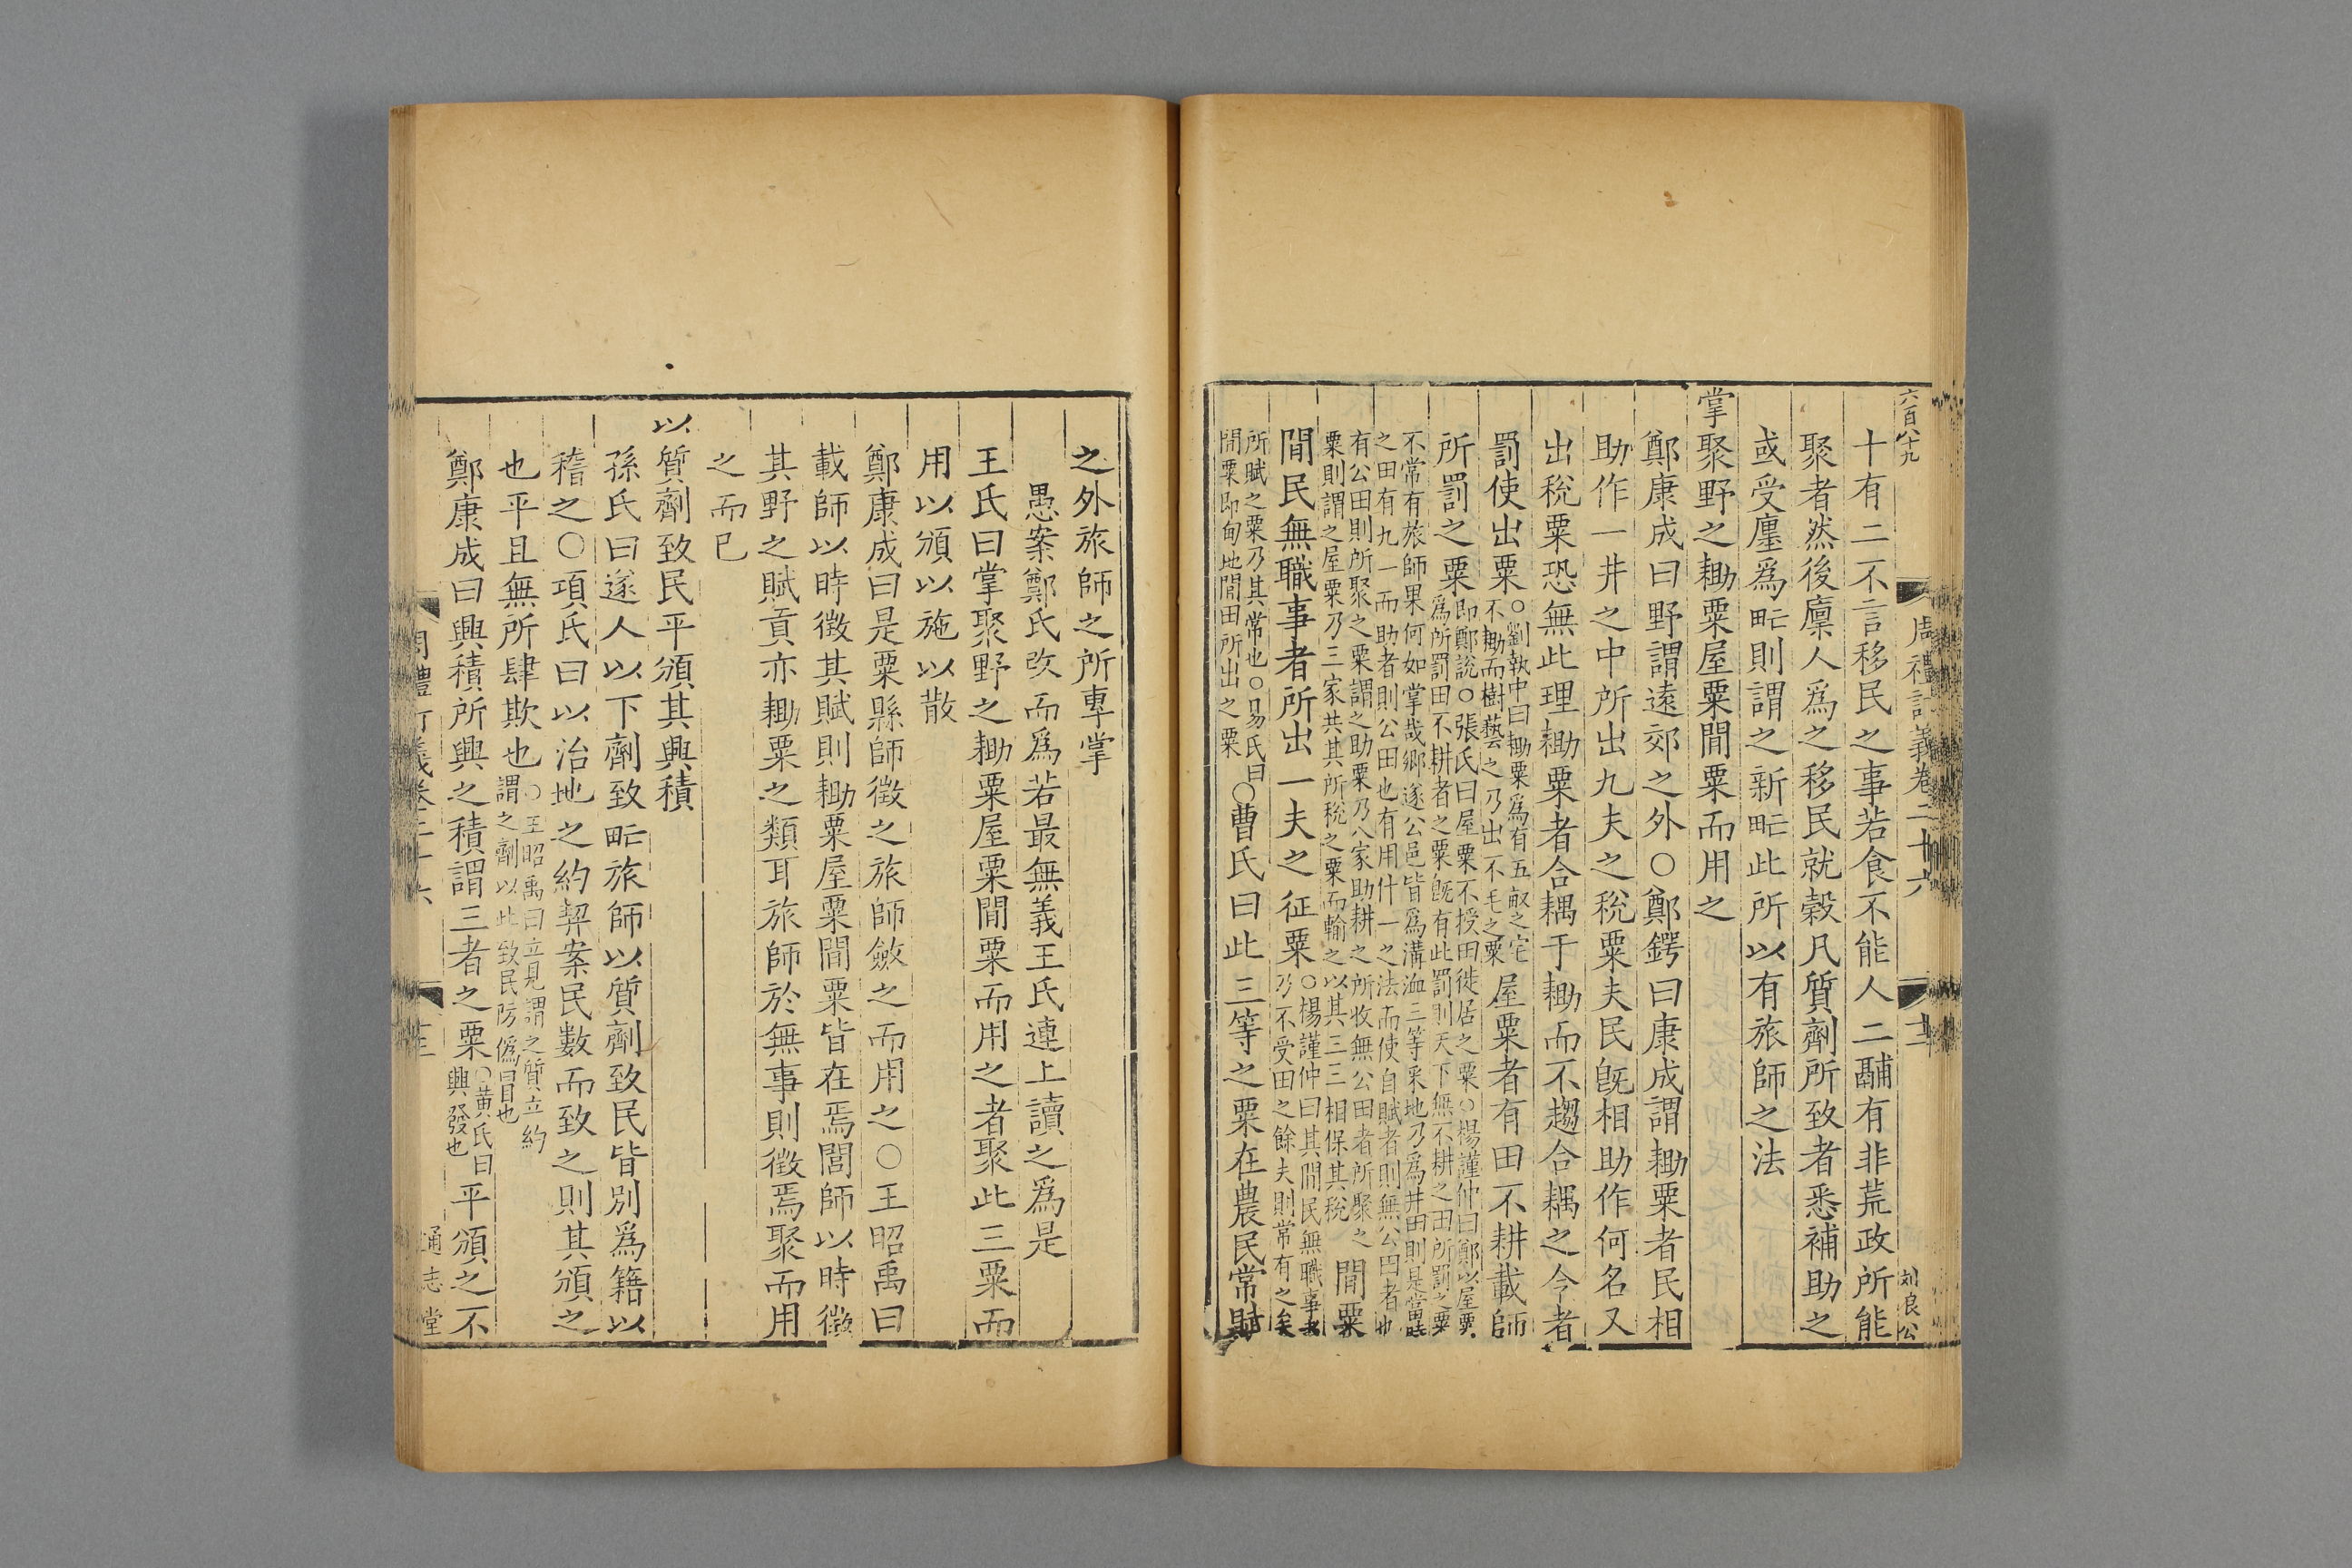 六百八十九
周禮訂義卷二十六
十三
刘良公
十有二不言移民之事若食不能人二鬴有非荒政所能
聚者然後廩人爲之移民就穀凡質劑所致者悉補助之
或受廛爲甿則謂之新甿此所以有旅師之法
掌聚野之耡粟屋粟閒粟而用之
鄭康成曰野謂遠郊之外○鄭鍔曰康成謂耡粟者民相
助作一井之中所出九夫之稅粟夫民旣相助作何名又
出稅粟恐無此理耡粟者合耦于耡而不趨合耦之令者
罰使出粟○劉執中曰耡粟爲有五畝之宅
不耡而樹藝之乃出不毛之粟屋粟者有田不耕載師
所罰之粟即鄭說○張氏曰屋粟不授田徙居之粟○楊謹仲曰鄭以屋粟
爲所罰田不耕者之粟旣有此罰則天下無不耕之田所罰之粟
不常有旅師果何如掌哉鄉遂公邑皆爲溝洫三等采地乃爲井田則是當時
之田有九一而助者則公田也有用什一之法而使自賦者則無公田者也
有公田則所聚之粟謂之助粟乃八家助耕之所收無公田者所聚之
粟則謂之屋粟乃三家共其所稅之粟而輸之以其三三相保其稅閒粟
閒民無職事者所出一夫之征粟○楊謹仲曰其閒民無職事者
乃不受田之餘夫則常有之矣
所賦之粟乃其常也○易氏曰
閒粟即甸地閒田所出之粟○曹氏曰此三等之粟在農民常賦
之外旅師之所專掌
愚案鄭氏改而爲若最無義王氏連上讀之爲是
王氏曰掌聚野之耡粟屋粟閒粟而用之者聚此三粟而
用以頒以施以散
鄭康成曰是粟縣師徵之旅師斂之而用之○王昭禹曰
載師以時徵其賦則耡粟屋粟閒粟皆在焉閭師以時徵
其野之賦貢亦耡粟之類耳旅師於無事則徵焉聚而用
之而已
以質劑致民平頒其興積
孫氏曰遂人以下劑致甿旅師以質劑致民皆別爲籍以
稽之○項氏曰以治地之約契案民數而致之則其頒之
也平且無所肆欺也○王昭禹曰立見謂之質立約
謂之劑以此致民防僞冒也
鄭康成曰興積所興之積謂三者之粟○黄氏曰
興發也平頒之不
周禮訂義卷二十六
十三
通志堂